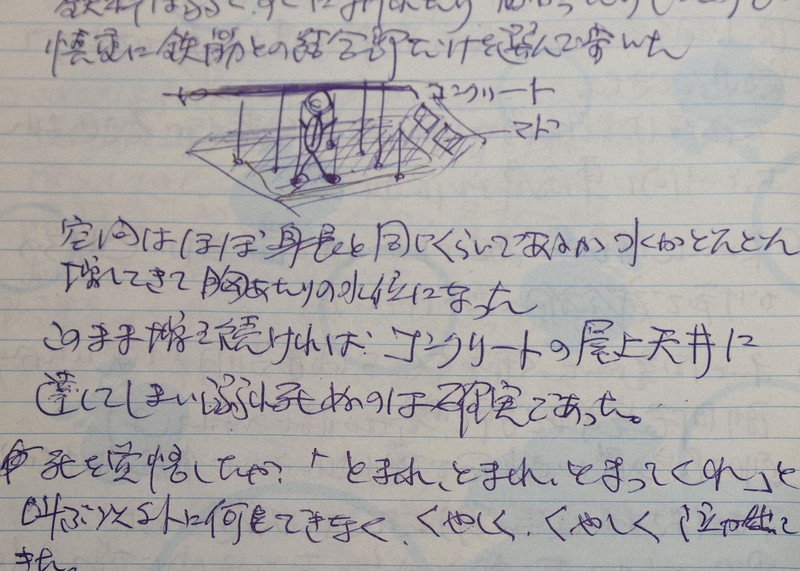 慎重に鉄筋との結合部だけを選んで歩いた
コンクリート
マド
空間はほぼ身長と同じくらいであるが水がどんどん
増してきて胸あたりの水位になった
このまま増え続ければコンクリートの屋上天井に
達してしまい溺れ死ぬのは確実であった。
死を覚悟したが「とまれ、とまれ、とまってくれ」と
叫ぶ以外に何もできなく、くやしく、くやしく泣
きた。